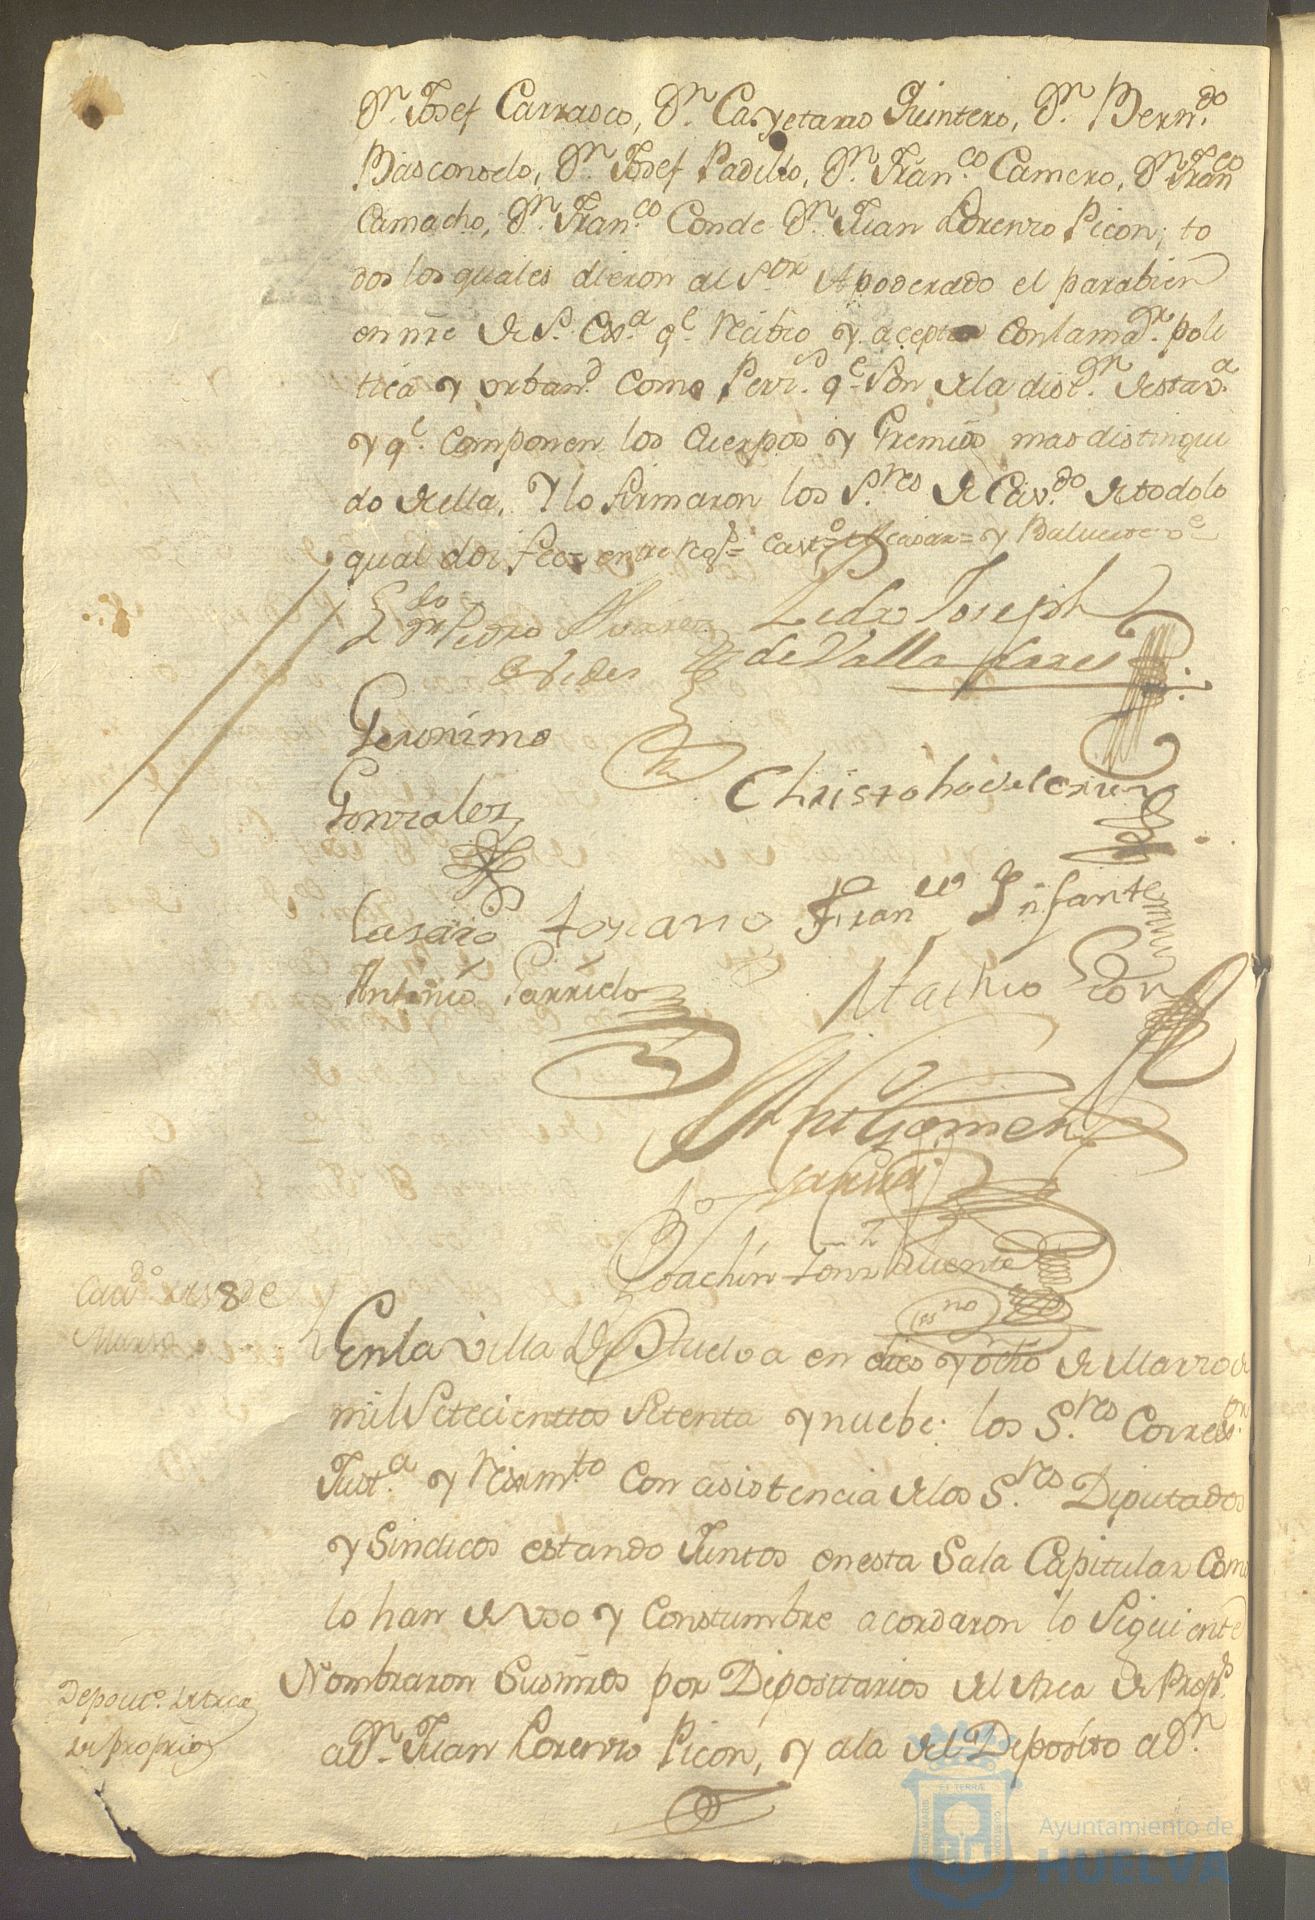 Dn. Josef Carrasco, Dn. Cayetano Quintero, Dn. Berndo.
Basconselo, Dn. Josef Padillo, Dn. Franco. Camero, Dn. Franco
Camacho, Dn. Franco. Conde Dn. Juan Lorenzo Picon; to
dos los quales dieron al Sor. Apoderado el parabien
en nre de S. Exa. qe. recibio y acepto con la maor. poli
tica y urband. como Pers. qe. son de la distn. de esta va.
y qe. componen los Cuerpos y Gremios mas distingui
do de ella, Y lo firmaron los Sres. de Cavdo. de todo lo
qual doi fee= entre reg.s=
Ldo. Dn. Pedro Alvarez Pedro Joseph
de Valladares
Geronimo
Gonzales
Christobal de la Cruz
Casaio toscano Franco Infante
Antonio Garrido
Mathio
Ant Gomez
Garcia
Joachin
esno
Cavdo. de 18 de
Marzo
En la villa de Huelva en dies y ocho de Marzo de
mil Setecienttos Setenta y nuebe: los Sres. Corregor.
Justa. y Regimto. con asistencia de los Sres. Diputados
y Sindicos estando Juntos en esta Sala Capitular Como
lo han de uso y Constumbre acordaron lo Siguiente
Nombraron Susmrds por Diposittarios del Arca de Props.
a Dn. Juan Lorenzo Picon, y a la del Deposito a Dn.
Deposito. de Arca
de Proprios
Ayuntamiento de
HUELVA